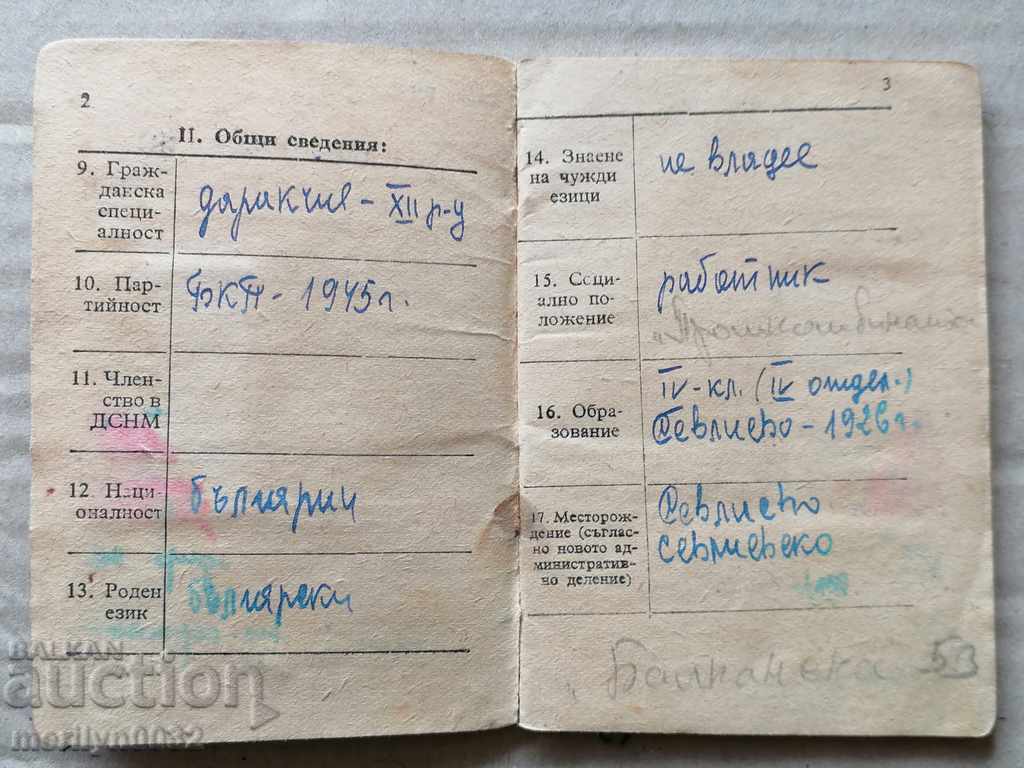 2
II. Общи сведения:
9. Граж-
данска
специ-
алност
даракчия - XII р-у
10. Пар-
тийност
БКП - 1945 г.
11. Член-
ство в
ДСНМ
12. Наци-
оналност
българин
13. Роден
език
български
3
14. Знаене
на чужди
езици
не владее
15. Соци-
ално по-
ложение
работник
"Промкомбината"
16. Обра-
зование
IV - кл. (IV отдел.)
Севлиево - 1926 г.
17. Месторож-
дение (съглас-
но новото ад-
министратив-
но деление)
Севлиево
севлиевско
"Балканска 53
BALKAN
auction
merilyn0032